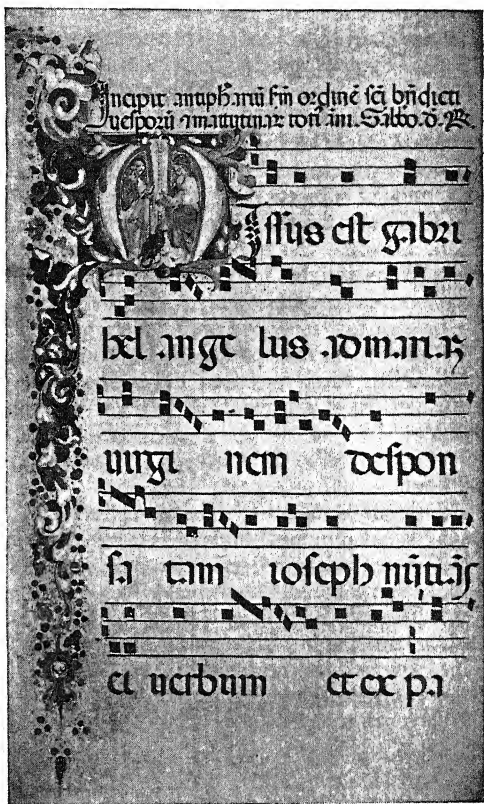 Incipit antiph̄ariū s̄m ordinē sc̄i bn̄dicti
uesporū ⁊ matutinaꝝ toti ān̄i. Sabbo. d. R.
Missus est gabri
hel ange lus ad mariaꝫ
uirgi nem despon
sa tam ioseph nūtiās
ei uerbum et ex pa